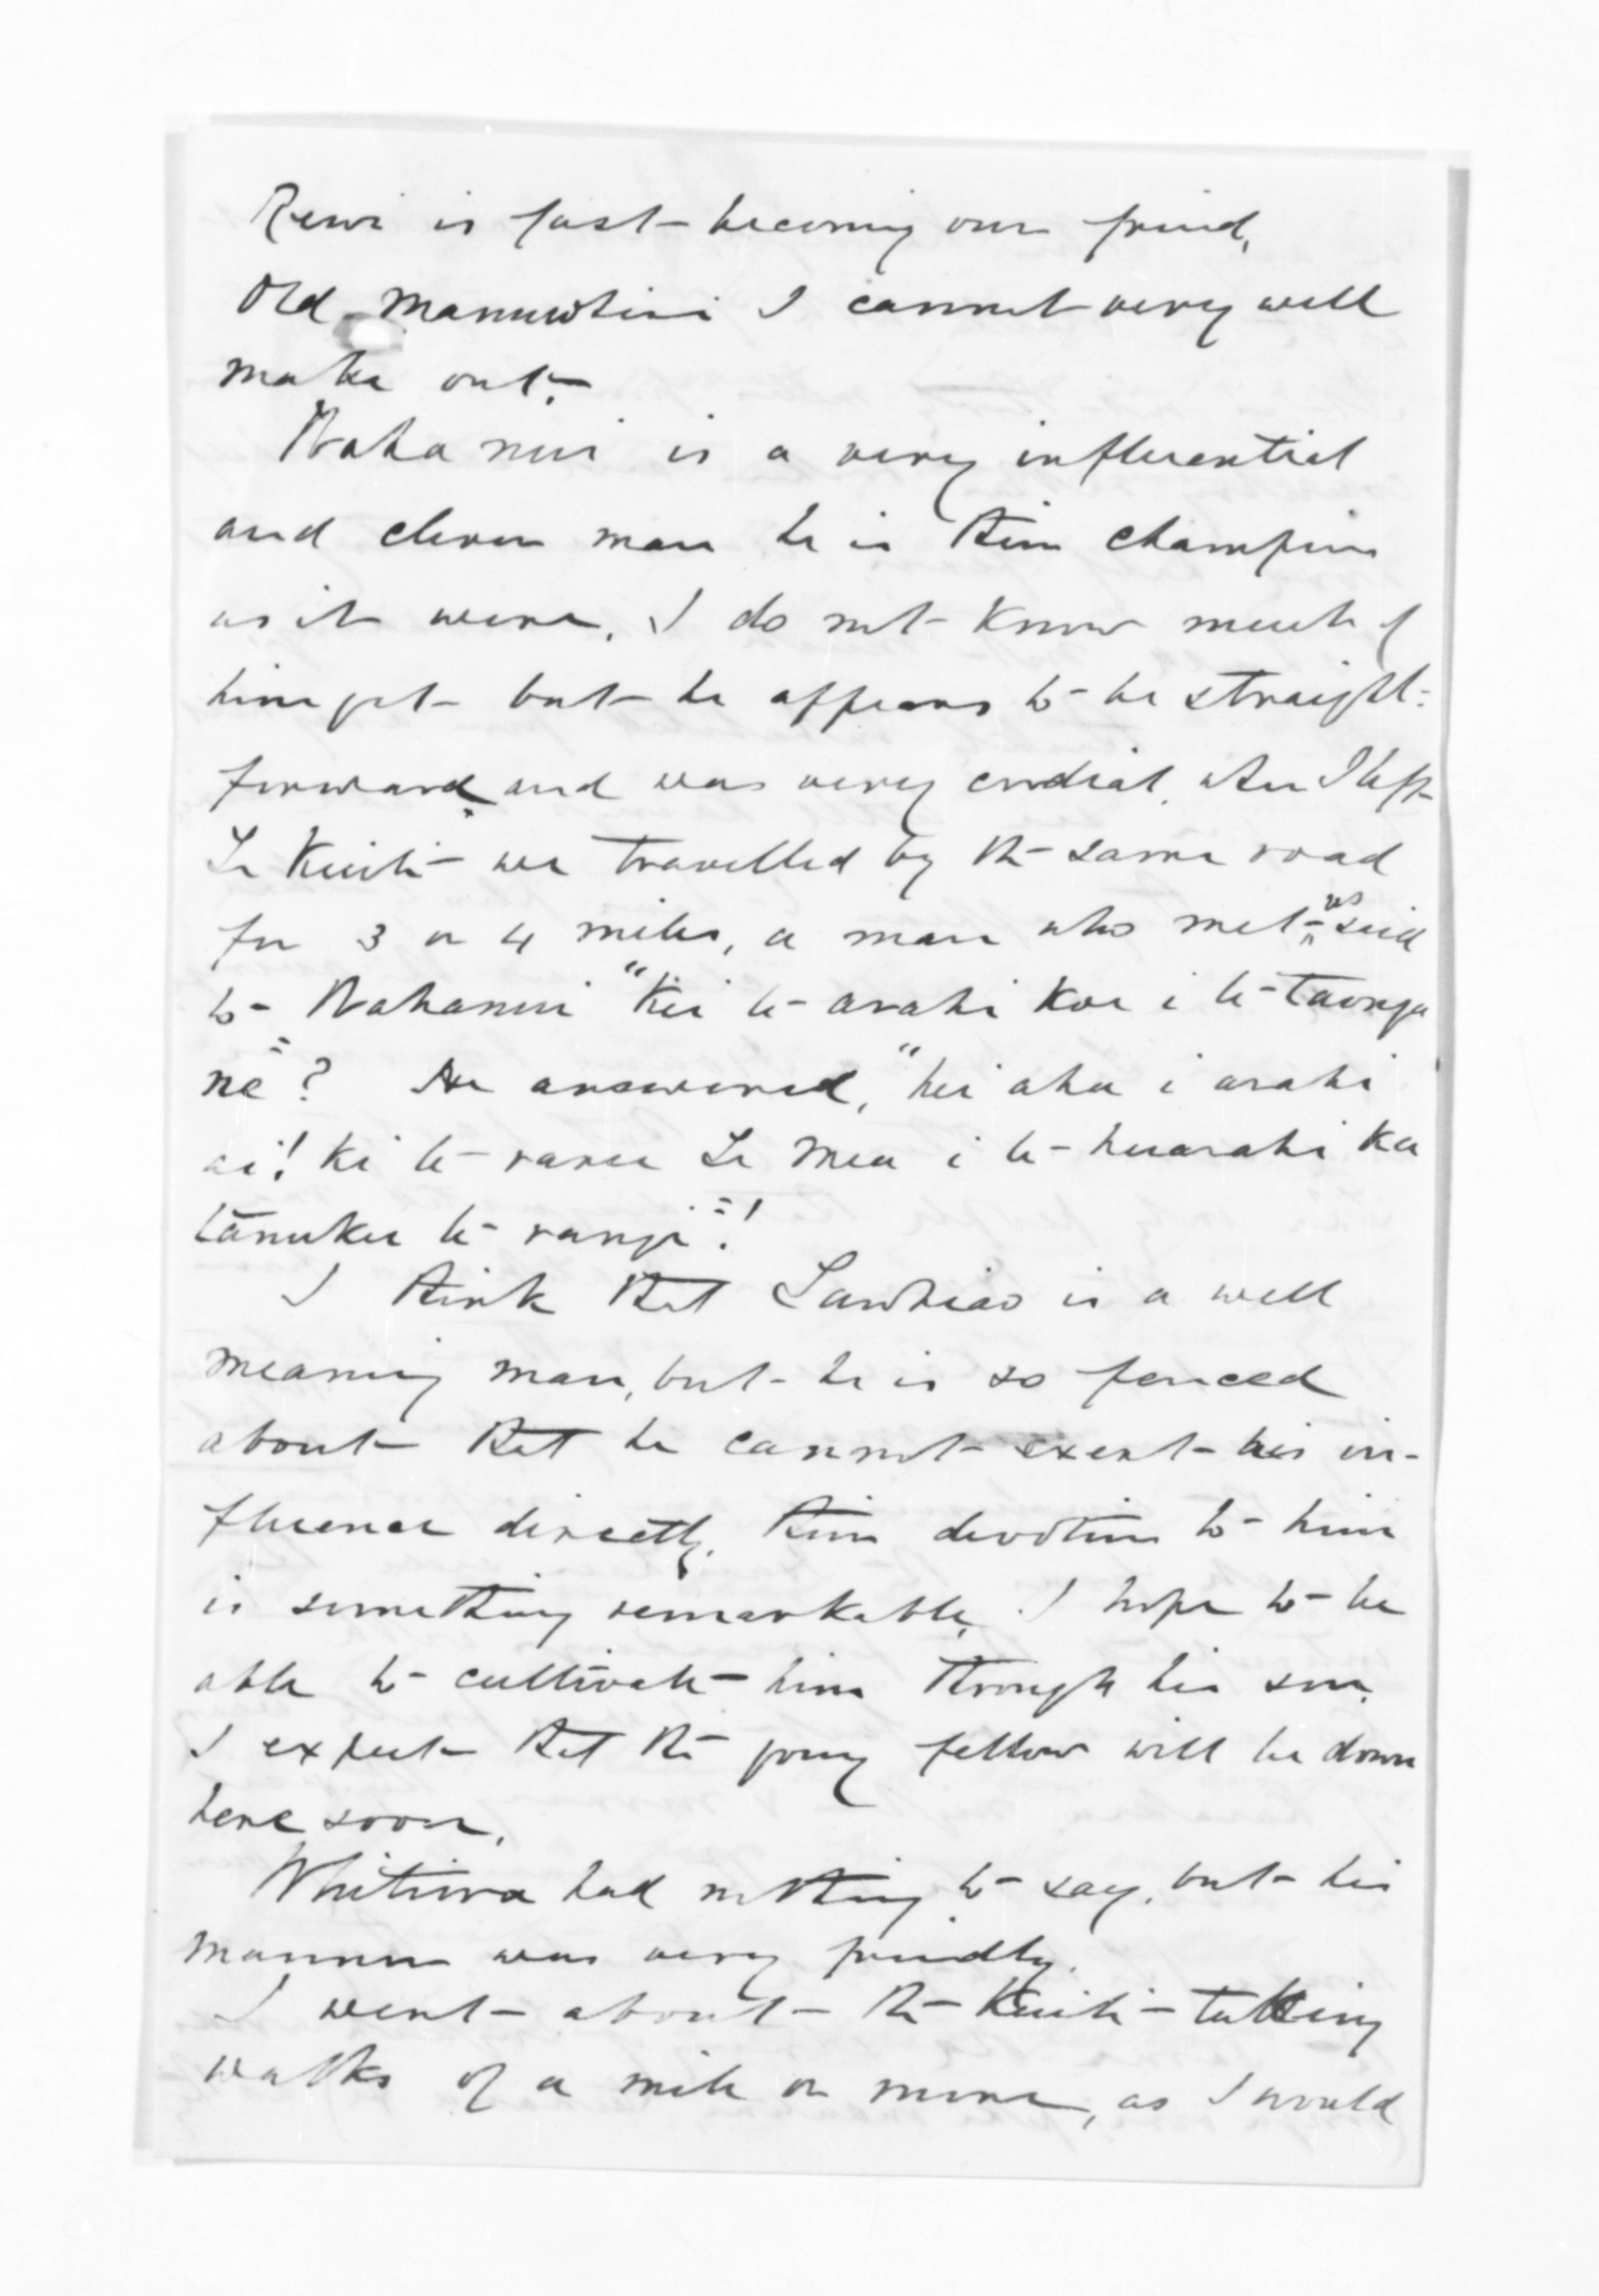 Rewi is fast becoming our friend,
Old Manuwhiri I cannot very well
make out.
Wahanui is a very influential
and clever man he is their champion
as it were. I do not know much of
him yet but he appears to be straight-
forward and was very cordial, when I left
Te Kuiti we travelled by the same road
for 3 or 4 miles, a man who met us said
to Wahanui "Kei te arahi koe i te taonga
nē"? He answered, "hei aha i arahi
ai! ki te raru Te Mea i te huarahi ka
tānuku te rangi"!
I think that Tawhiao is a well
meaning man, but he is so fenced
about that he cannot exert his in-
fluence directly. Their devotion to him
is something remarkable, I hope to be
able to cultivate him through his son,
I expect that the young fellow will be down
here soon,
Whitiora had nothing to say, but his
manner was very friendly.
I went about the Kuiti taking
walks of a mile or more, as I would